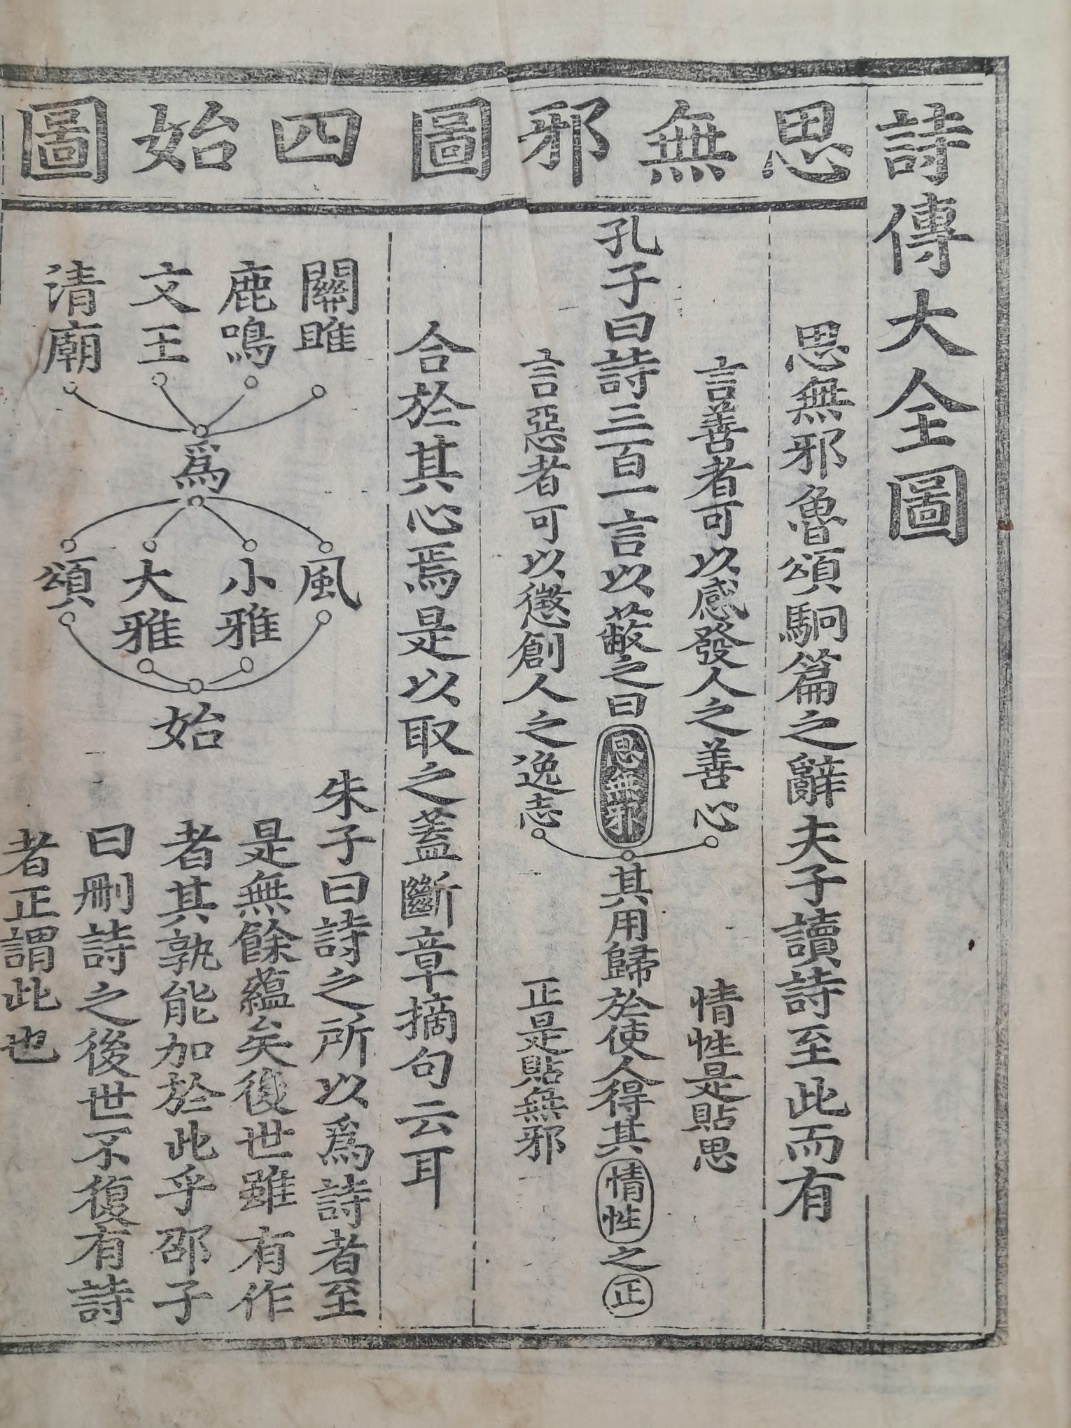 詩傳大全圖
思無邪圖
四始圖
思無邪魯頌駉篇之辭夫子讀詩至此而有
言善者可以感發人之善心
情性是貼思
孔子曰詩三百一言以蔽之曰思無邪其用歸於使人得其情性之正
言惡者可以懲創人之逸志
正是貼無邪
合於其心焉是以取之蓋斷章摘句云耳
關雎
鹿鳴
文王
清廟
爲
風
小雅
大雅
頌
始
朱子曰詩之所以爲詩者至
是無餘蘊矣後世雖有作
者其孰能加於此乎邵子
曰刪詩之後世不復有詩
者正謂此也